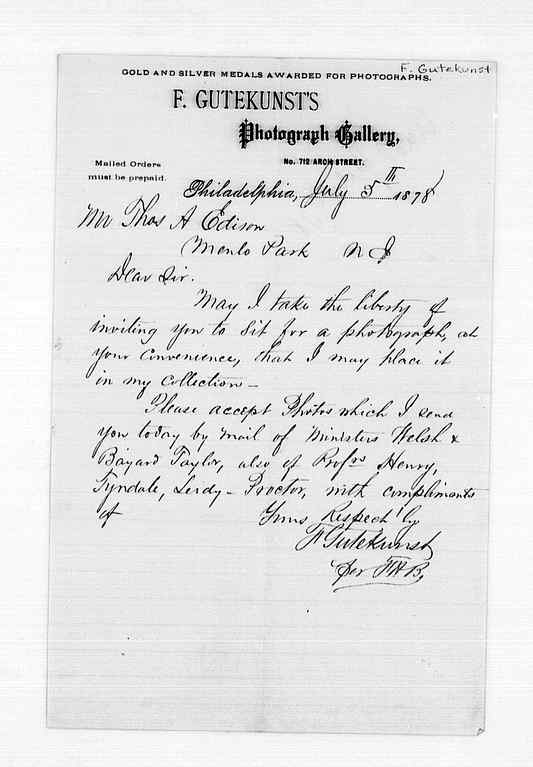 F. Gutekunst
GOLD AND SILVER MEDALS AWARDED FOR PHOTOGRAPHS.
F. GUTEKUNST'S
Photograph Gallery,
No. 712 ARCH STREET.
Mailed Orders
must be prepaid.
Philadelphia, July 5th 1878
Mr Thos A Edison
Menlo Park N J
Dear Sir.
May I take the liberty of
inviting you to sit for a photograph, at
your convenience, that I may place it
in my collection—
Please accept Photos which I send
you today by mail of Ministers Welsh &
Bayard Taylor, also of Profsrs Henry,
Tyndale, Leidy - Proctor, with compliments
of Yours Respect'ly
F Gutekunst
Per